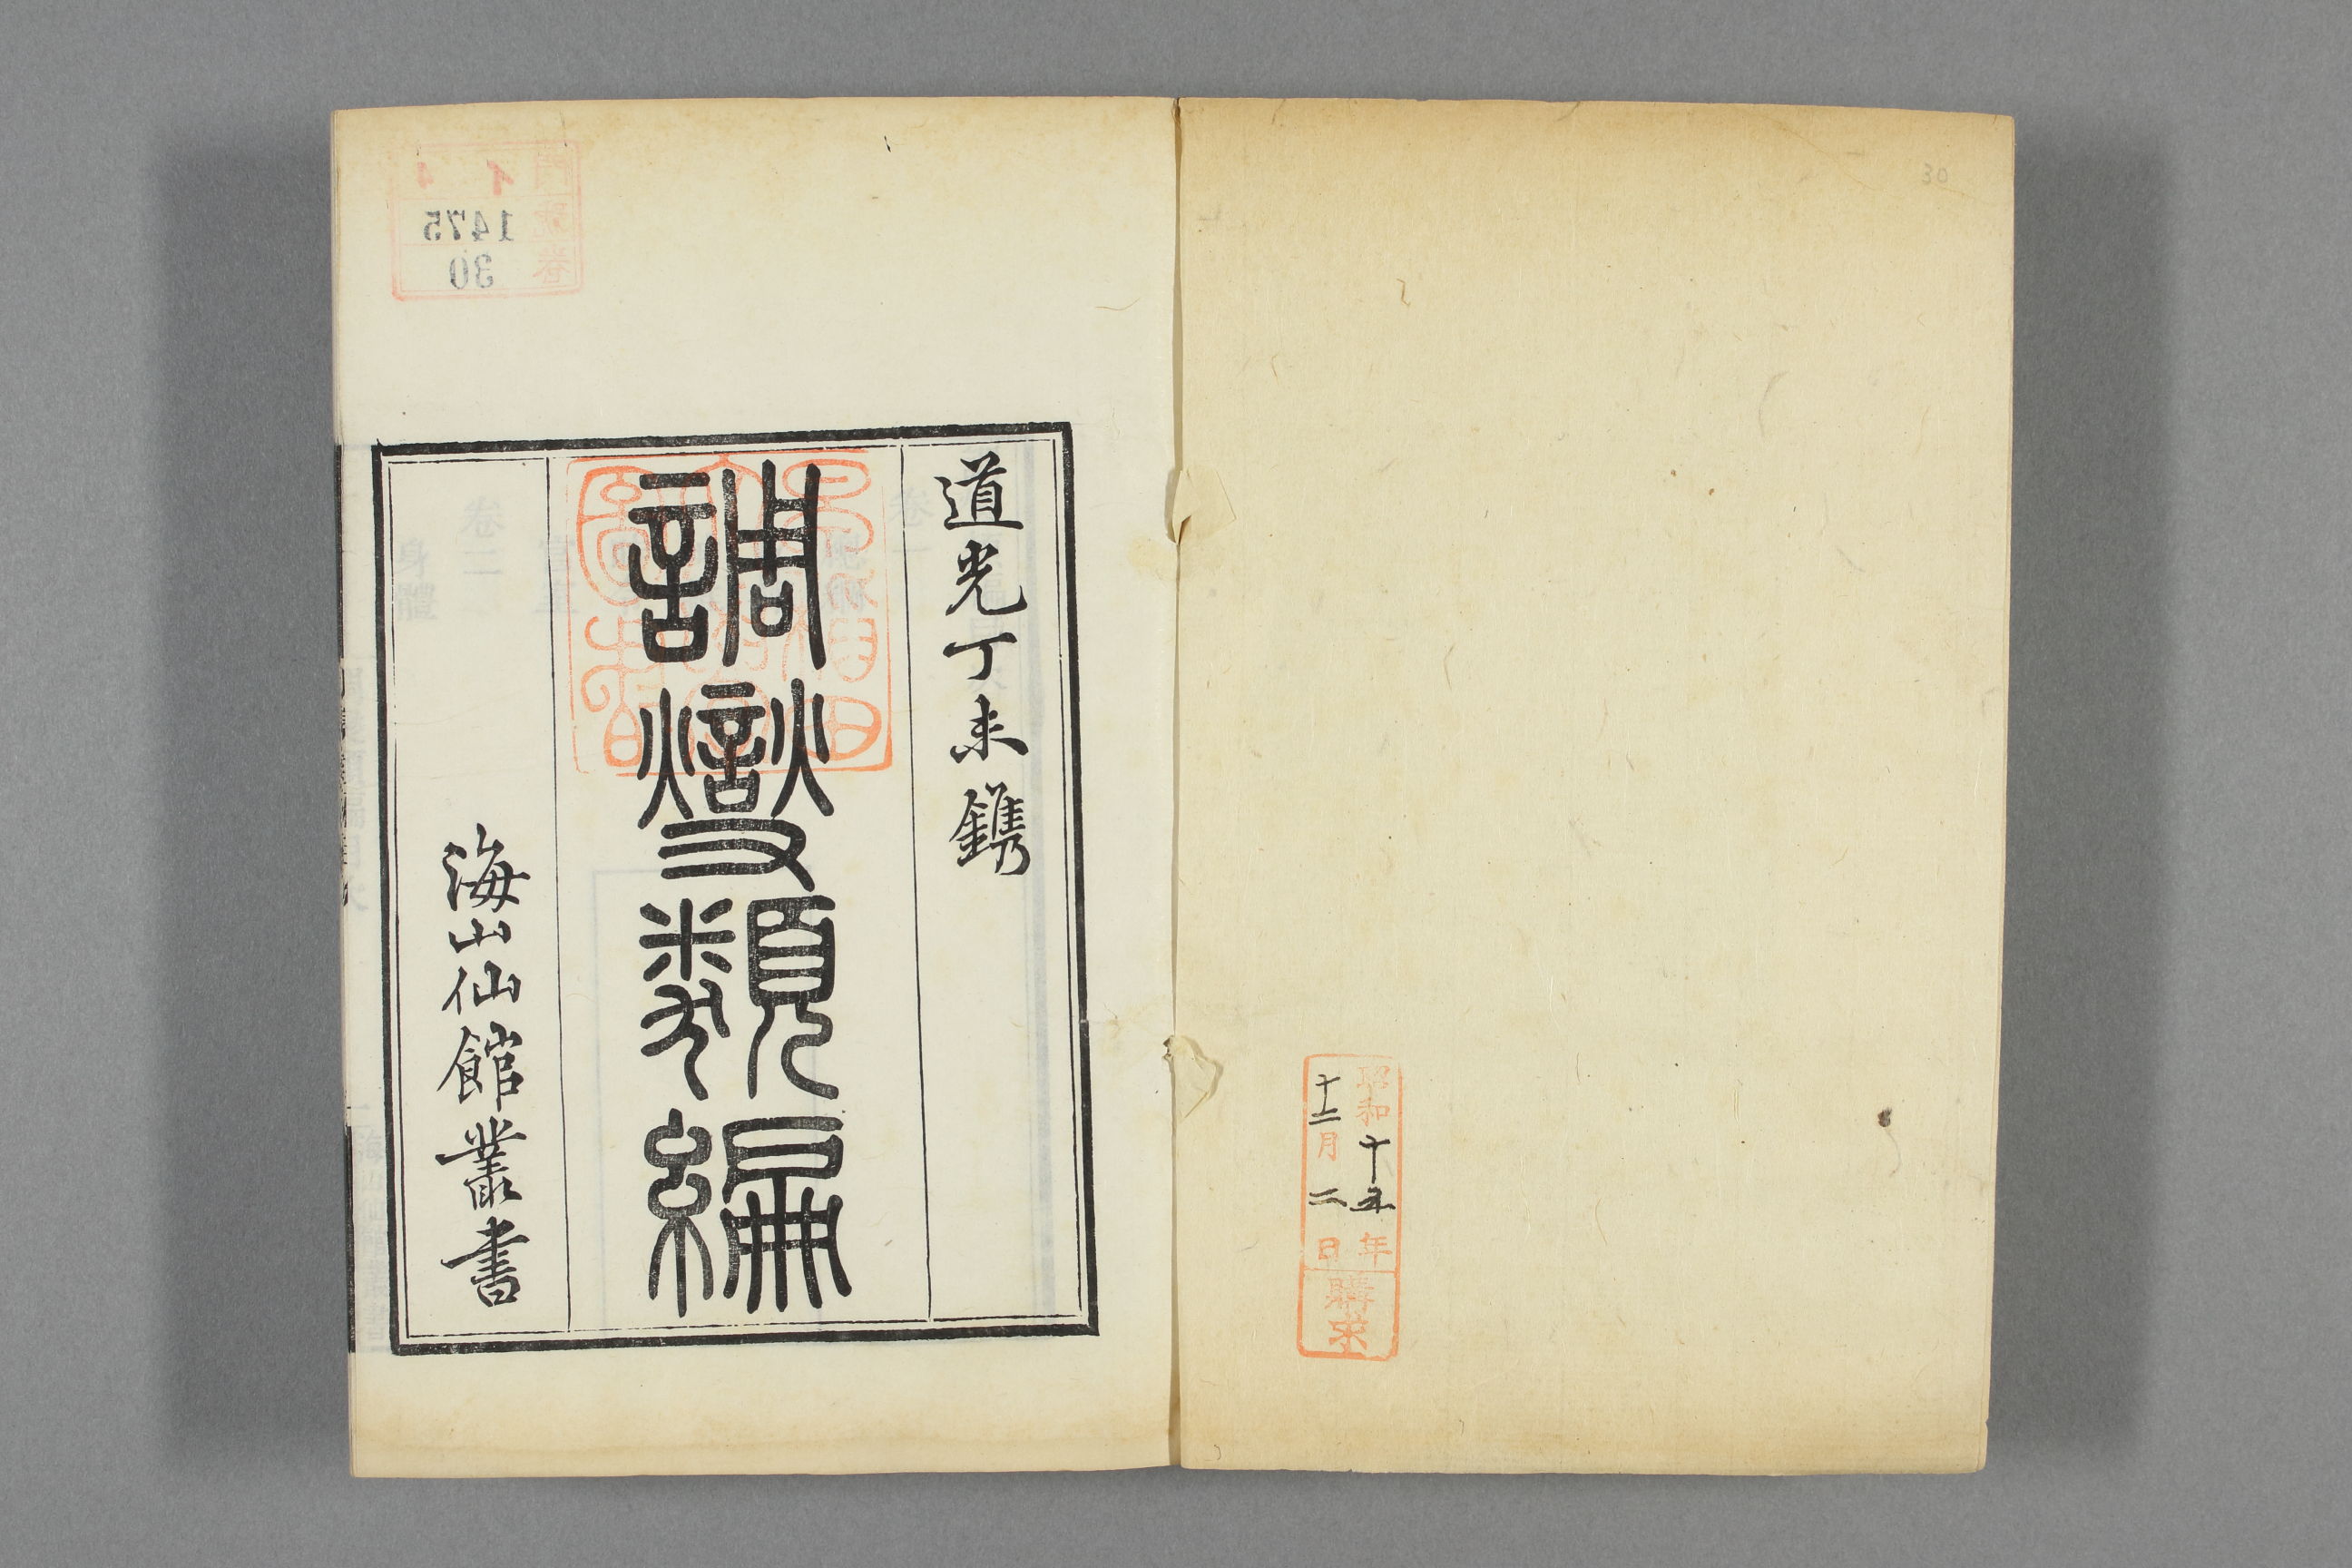 30
昭和十五年
十二月二日
購求
道光丁未鐫
調燮類編
海山仙館叢書
1475
30